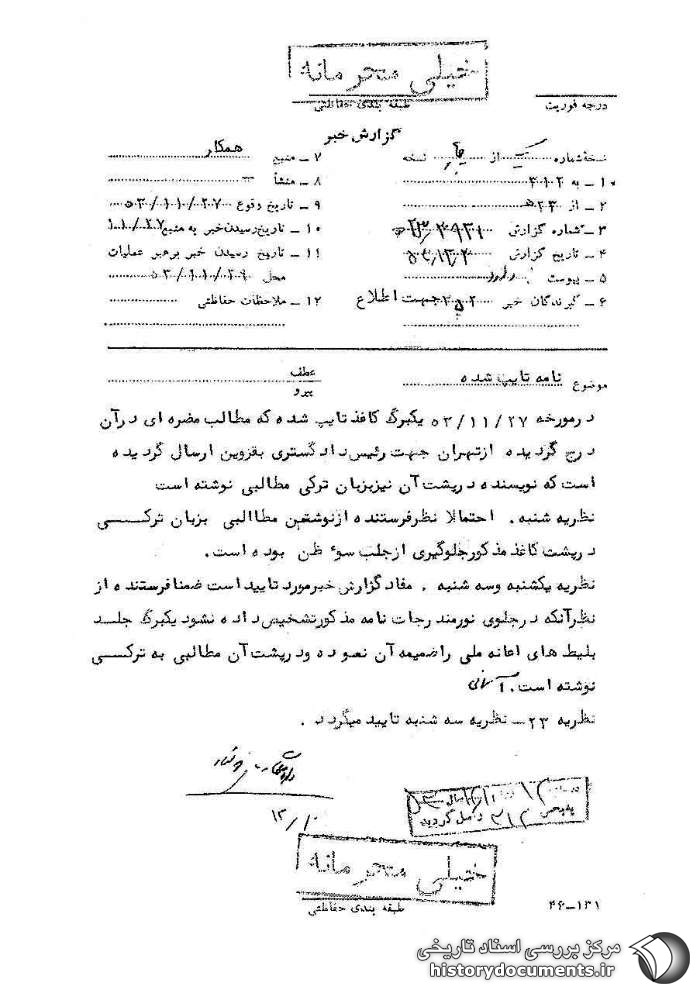 خیلی محرمانه
طبقه بندی حفاظتی
درجه فوریت
گزارش خبر
نسخه شماره یک از چهار نسخه
۱ــ به ۳۰۲
۲ــ از ۵۲۳
۳ــ شماره گزارش
۴ــ تاریخ گزارش
۵ــ پیوست دارد
۶ــ گیرندگان خبر ۲۵۲ جهت اطلاع
۷ــ منبع همکار
۸ــ منشأ ــ
۹ــ تاریخ وقوع ۵۳/۱۱/۲۷
۱۰ــ تاریخ رسیدن خبر به منبع ۱۱/۲۷
۱۱ــ تاریخ رسیدن خبر برهبر عملیات
محل ۵۳/۱۱/۲۹
۱۲ــ ملاحظات حفاظتی
موضوع نامه تایپ شده
عطف
پیرو
درمورخه ۵۳/۱۱/۲۷ یکبرگ کاغذ تایپ شده که مطالب مضره ای درآن
درج گردیده ازتهران جهت رئیس دادگستری بقزوین ارسال گردیده
است که نویسنده درپشت آن نیزبزبان ترکی مطالبی نوشته است
نظریه شنبه . احتمالا نظرفرستنده ازنوشتن مطاالبی بزبان ترکـــی
درپشت کاغذ مذکورجلوگیری ازجلب سوء ظن بوده است.
نظریه یکشنبه وسه شنبه . مفاد گزارش خبرمورد تایید است ضمنا فرستنده از
نظرآنکه درجلوی نورمندرجات نامه مذکورتشخیص داده نشود یکبرگ جلــد
بلیط های اعانه ملی راضمیمه آن نموده ودرپشت آن مطالبی به ترکـــی
نوشته است.
نظریه ۲۳ــ نظریه سه شنبه تایید میگردد .
۱۲/۱۰
خیلی محرمانه
طبقه بندی حفاظتی
۴۶ــ۱۳۱
مرکز بررسی اسناد تاریخی
historydocuments.ir